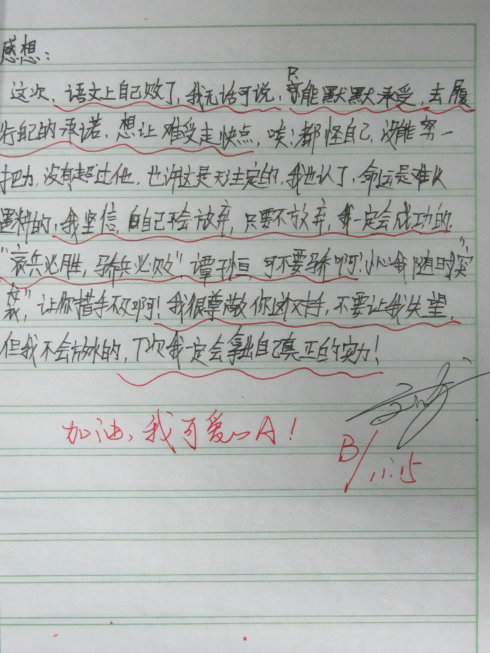 感想:
这次,语文上自己败了,我无话可说,只能默默承受,去履
行自己的承诺,想让难受走快点,唉!都怪自己,没能努一
把力,没有超过他,也许这是天主定的,我也认了,命运是难以
的,我坚信,自己不会放弃,只要不放弃,我一定会成功的.
"哀兵必胜,骄兵必败"谭恒,可不要骄啊!小心我随时"突
袭",让你措手不及啊!我很尊敬你这对手,不要让我失望,
但我不会放水的,下次我一定会拿出自己真正的实力!
加油,我可爱的A!
B/11.15